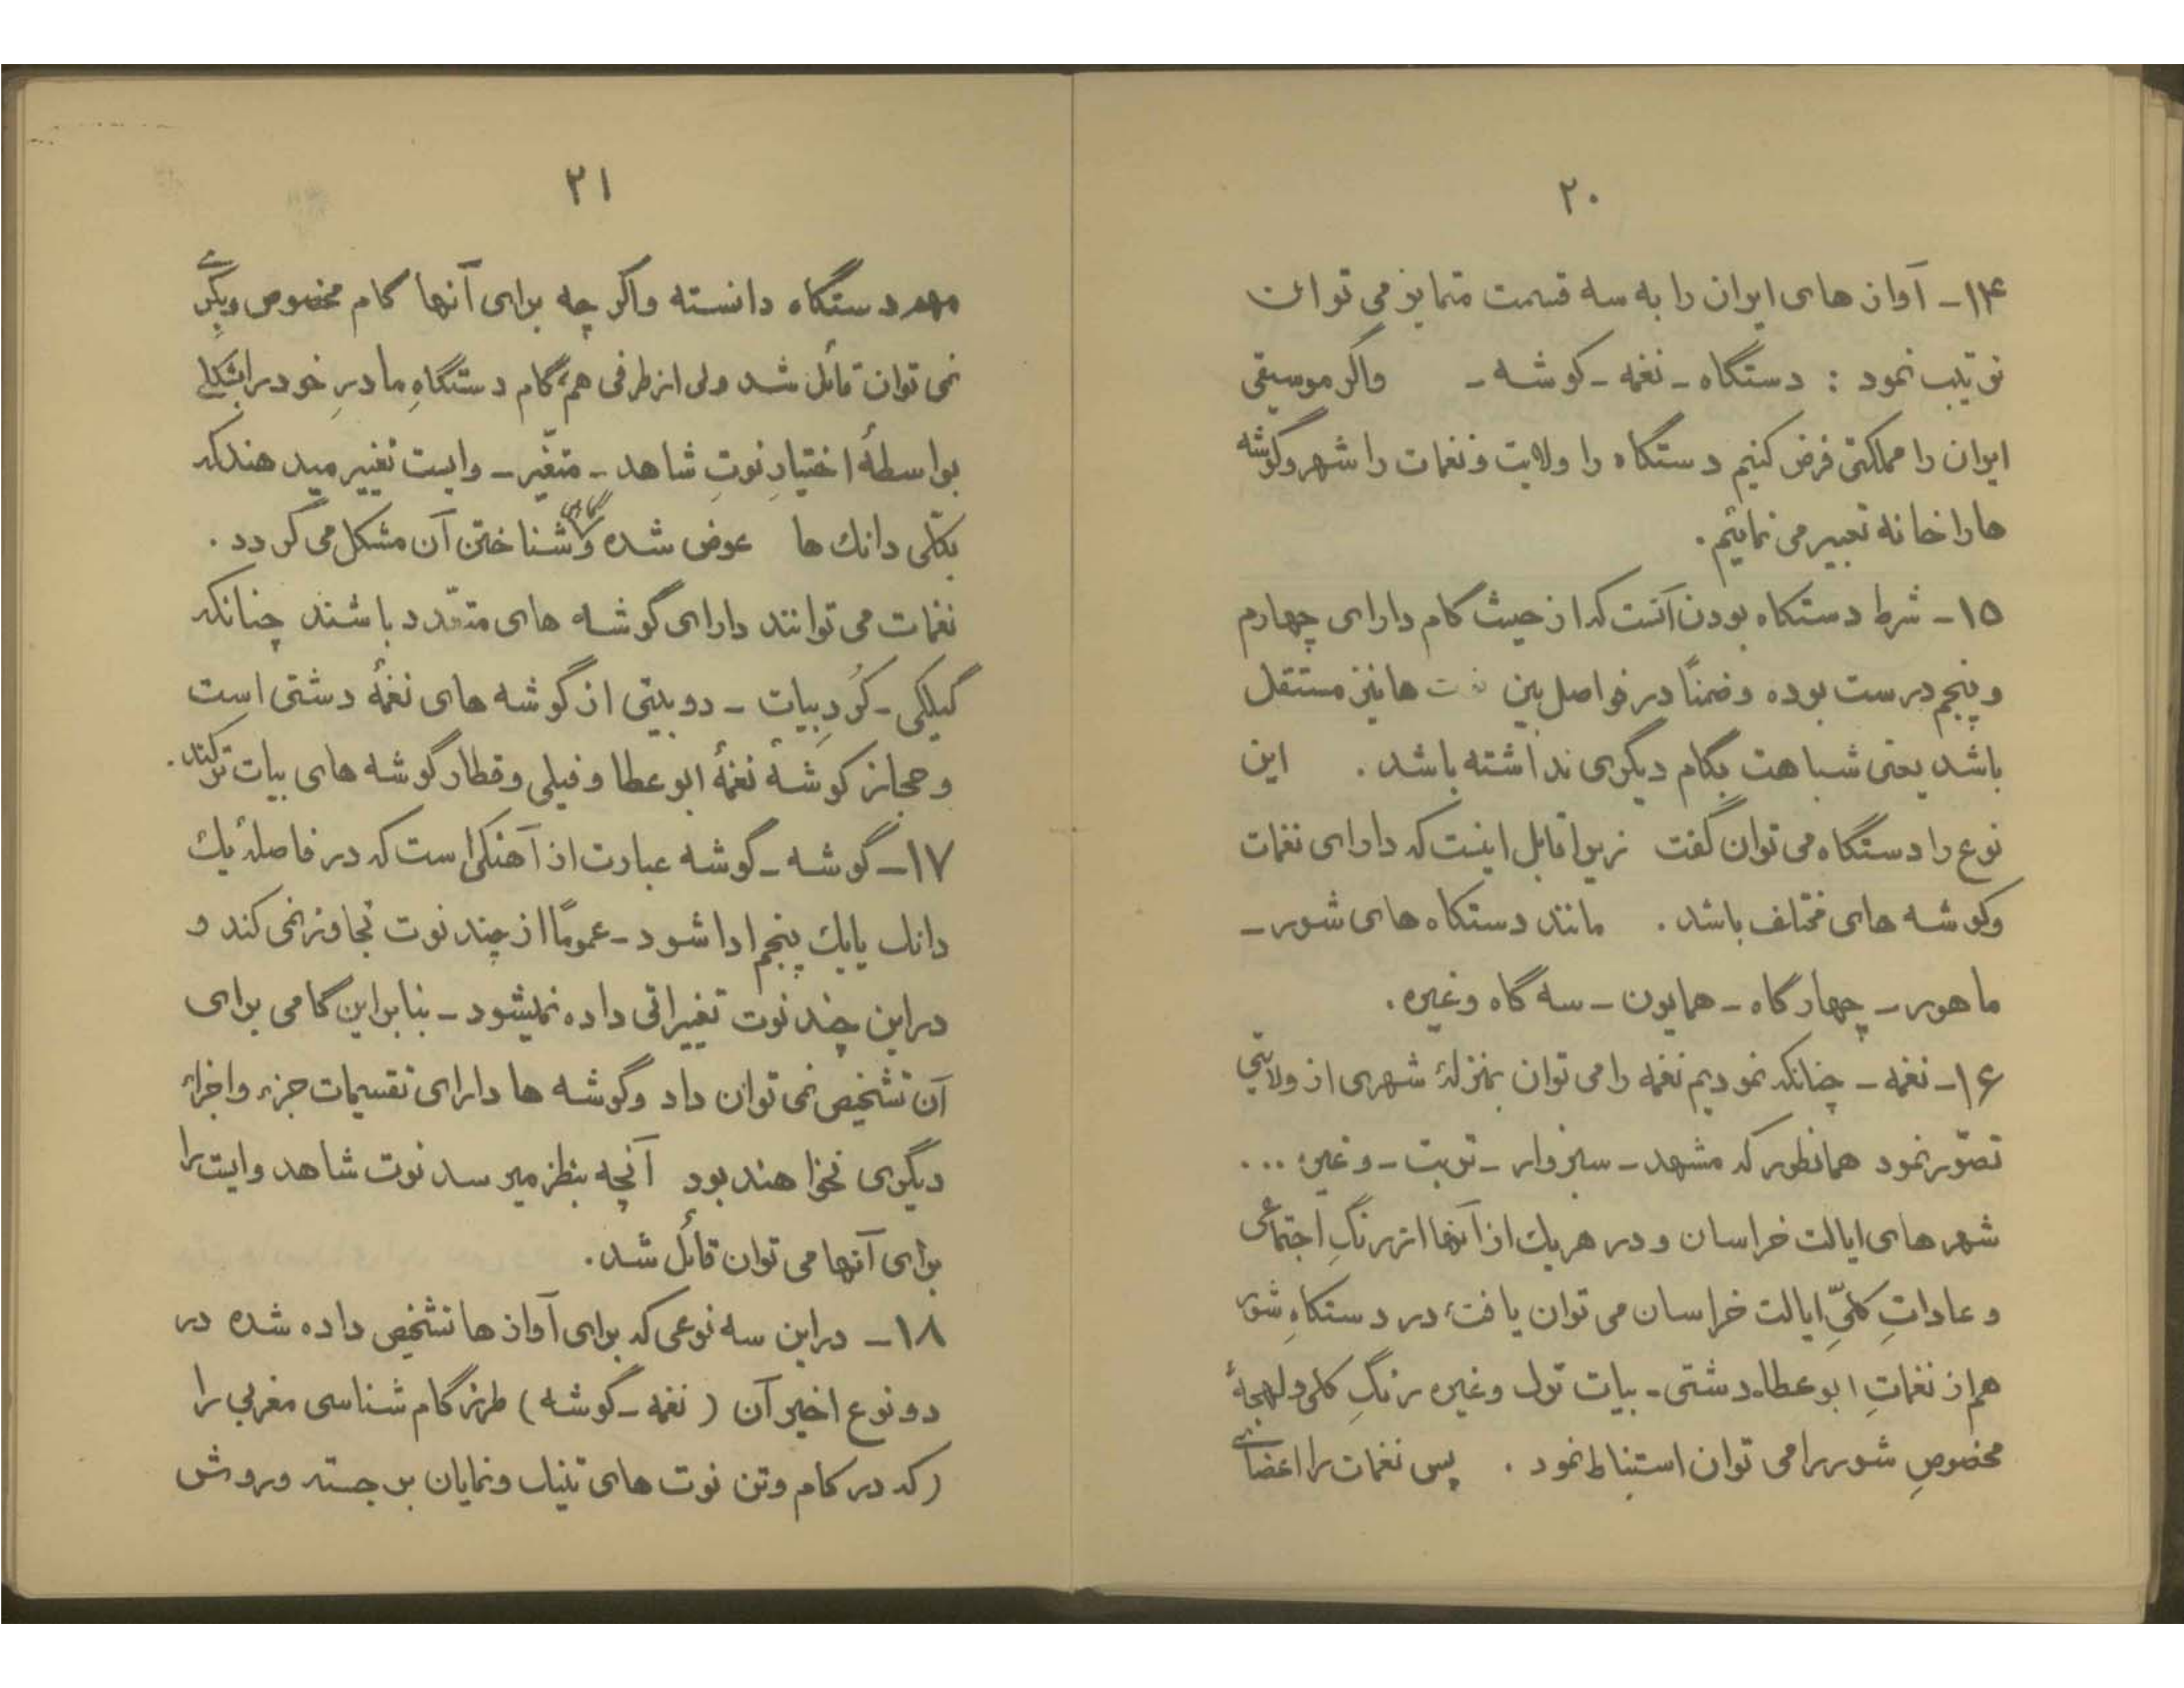 ۲۰
۱۴- آواز های ایران را به سه قسمت متمایز می توان
ترتیب نمود : دستگاه - نغمه - گوشه - واگر موسیقی
ایران را مملکتی فرض کنیم دستگاه را ولایت و نغمات را شهر وگوشه
ها را خانه تعبیر می نمائیم.
۱۵- شرط دستگاه بودن آنست که از حیث گام دارای چهارم
و پنجم درست بوده و ضمناً در فواصل بین نت ها نیز مستقل
باشد یعنی شباهت بگام دیگری نداشته باشد . این
نوع را دستگاه می توان گفت زیرا قابل اینست که دارای نغمات
وگوشه های مختلف باشد . مانند دستگاه های شور -
ماهور - چهارگاه - همایون - سه گاه وغیره .
۱۶- نغمه - چنانکه نمودیم نغمه را می توان بمنزلهٔ شهری از ولایتی
تصوّر نمود همانطور که مشهد - سبزوار - تربت - وغیره ...
شهر های ایالت خراسان و در هر یک از آنها اثر رنگِ اجتماعی
و عاداتِ کلّیِ ایالت خراسان می توان یافت، در دستگاهِ شور
هم از نغماتِ ابوعطا - دشتی - بیات ترک وغیره رنگِ کلی و لهجهٔ
مخصوصِ شور را می توان استنباط نمود . پس نغمات را اعضای
۲۱
مهم دستگاه دانسته واگر چه برای آنها گام مخصوص دیگری
نمی توان قائل شد ولی از طرفی هم گام دستگاهِ مادرِ خود را بشکلی
بواسطهٔ اختیارِ نوتِ شاهد - متغّیر - وایست تغییر میدهند که
بکلّی دانگ ها عوض شده و گاهی شناختن آن مشکل می گردد .
نغمات می توانند دارای گوشه های متعّدد باشند چنانکه
گیلکی - کُردِ بیات - دوبیتی از گوشه های نغمهٔ دشتی است
و حجاز گوشهٔ نغمهٔ ابوعطا و فیلی وقطار گوشه های بیات ترکند .
۱۷- گوشه - گوشه عبارت از آهنگی است که در فاصلهٔ یک
دانگ یا یک پنجم ادا شود - عموماً از چند نوت تجاوز نمی کند و
در این چند نوت تغییراتی داده نمیشود - بنابراین گامی برای
آن تشخیص نمی توان داد وگوشه ها دارای تقسیمات جزء واجزاء
دیگری نخواهند بود آنچه بنظر میرسد نوت شاهد وایست را
برای آنها می توان قائل شد.
۱۸- در این سه نوعی که برای آواز ها تشخیص داده شده در
دو نوع اخیر آن ( نغمه - گوشه ) طرز گام شناسی مغربی را
(که در گام وتن نوت های تنیک ونمایان برجسته وروش